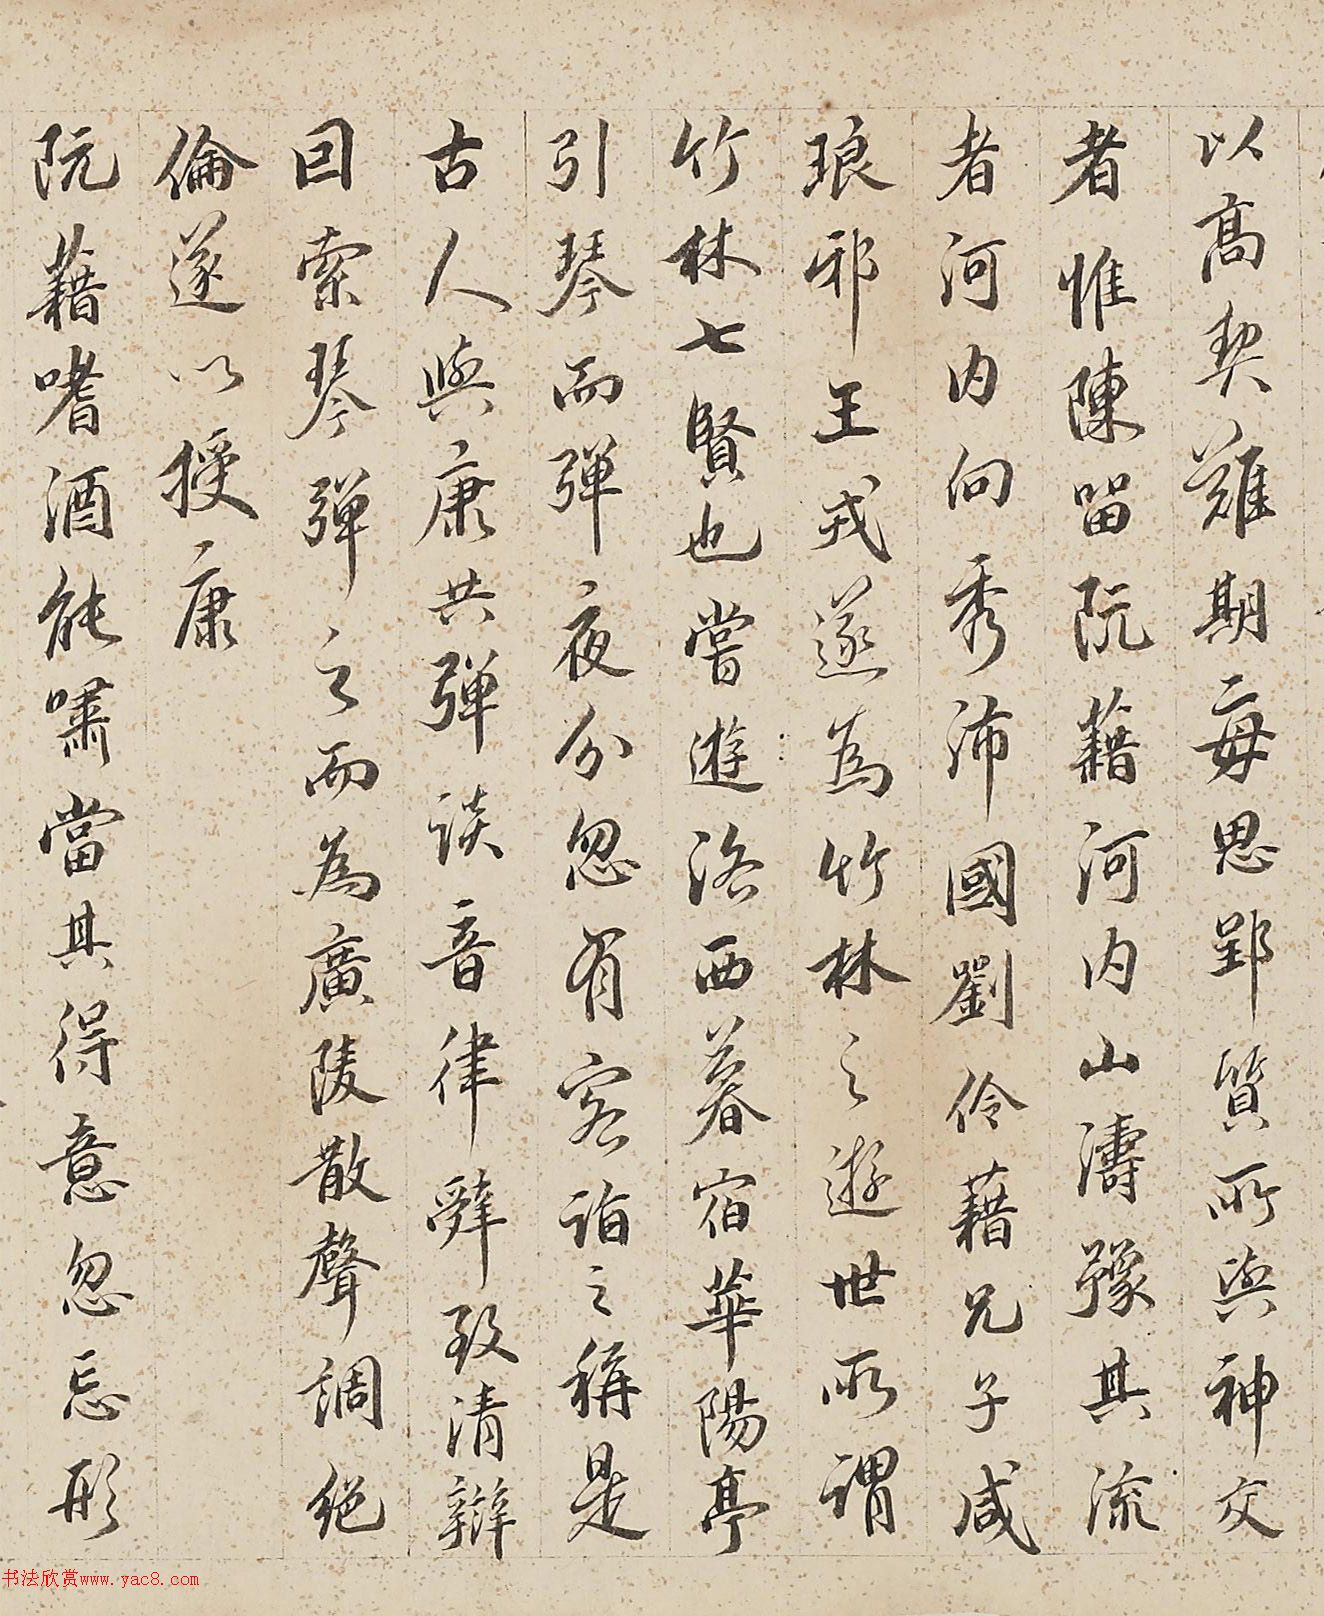 以高契難期每思郢質所與神交
者惟陳留阮藉河内山濤豫其流
者河内向秀沛國劉伶藉兄子咸
琅邪王戎遂為竹林之遊世所謂
竹林七賢也嘗遊洛西暮宿華陽亭
引琴而彈夜分忽有客詣之稱是
古人與康共彈談音律辭致清辯
曰索琴彈之而為廣陵散聲調絕
倫遂以授康
阮藉嗜酒能嘯當其得意忽忘形
书法欣赏www.yac8.com